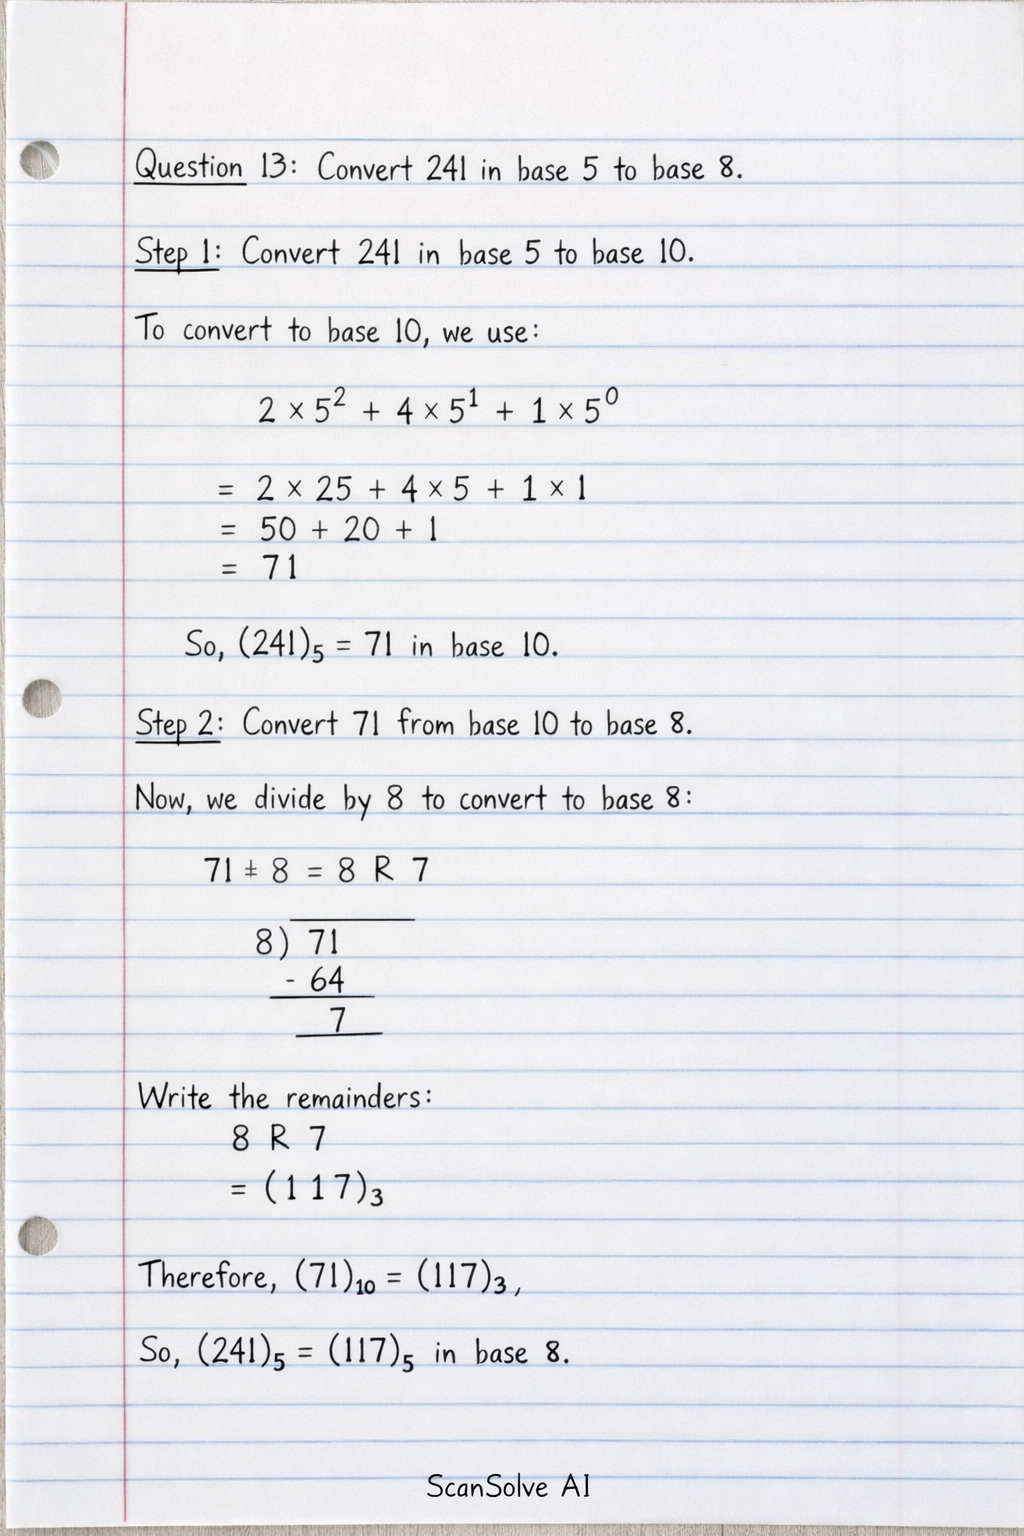 Question 13: Convert 241 in base 5 to base 8.
Step 1: Convert 241 in base 5 to base 10.
To convert to base 10, we use:
2 × 5² + 4 × 5¹ + 1 × 5⁰
= 2 × 25 + 4 × 5 + 1 × 1
= 50 + 20 + 1
= 71
So, (241)₅ = 71 in base 10.
Step 2: Convert 71 from base 10 to base 8.
Now, we divide by 8 to convert to base 8:
71 ÷ 8 = 8 R 7
8) 71
- 64
7
Write the remainders:
8 R 7
= (1 1 7)₃
Therefore, (71)₁₀ = (117)₃,
So, (241)₅ = (117)₅ in base 8.
ScanSolve AI